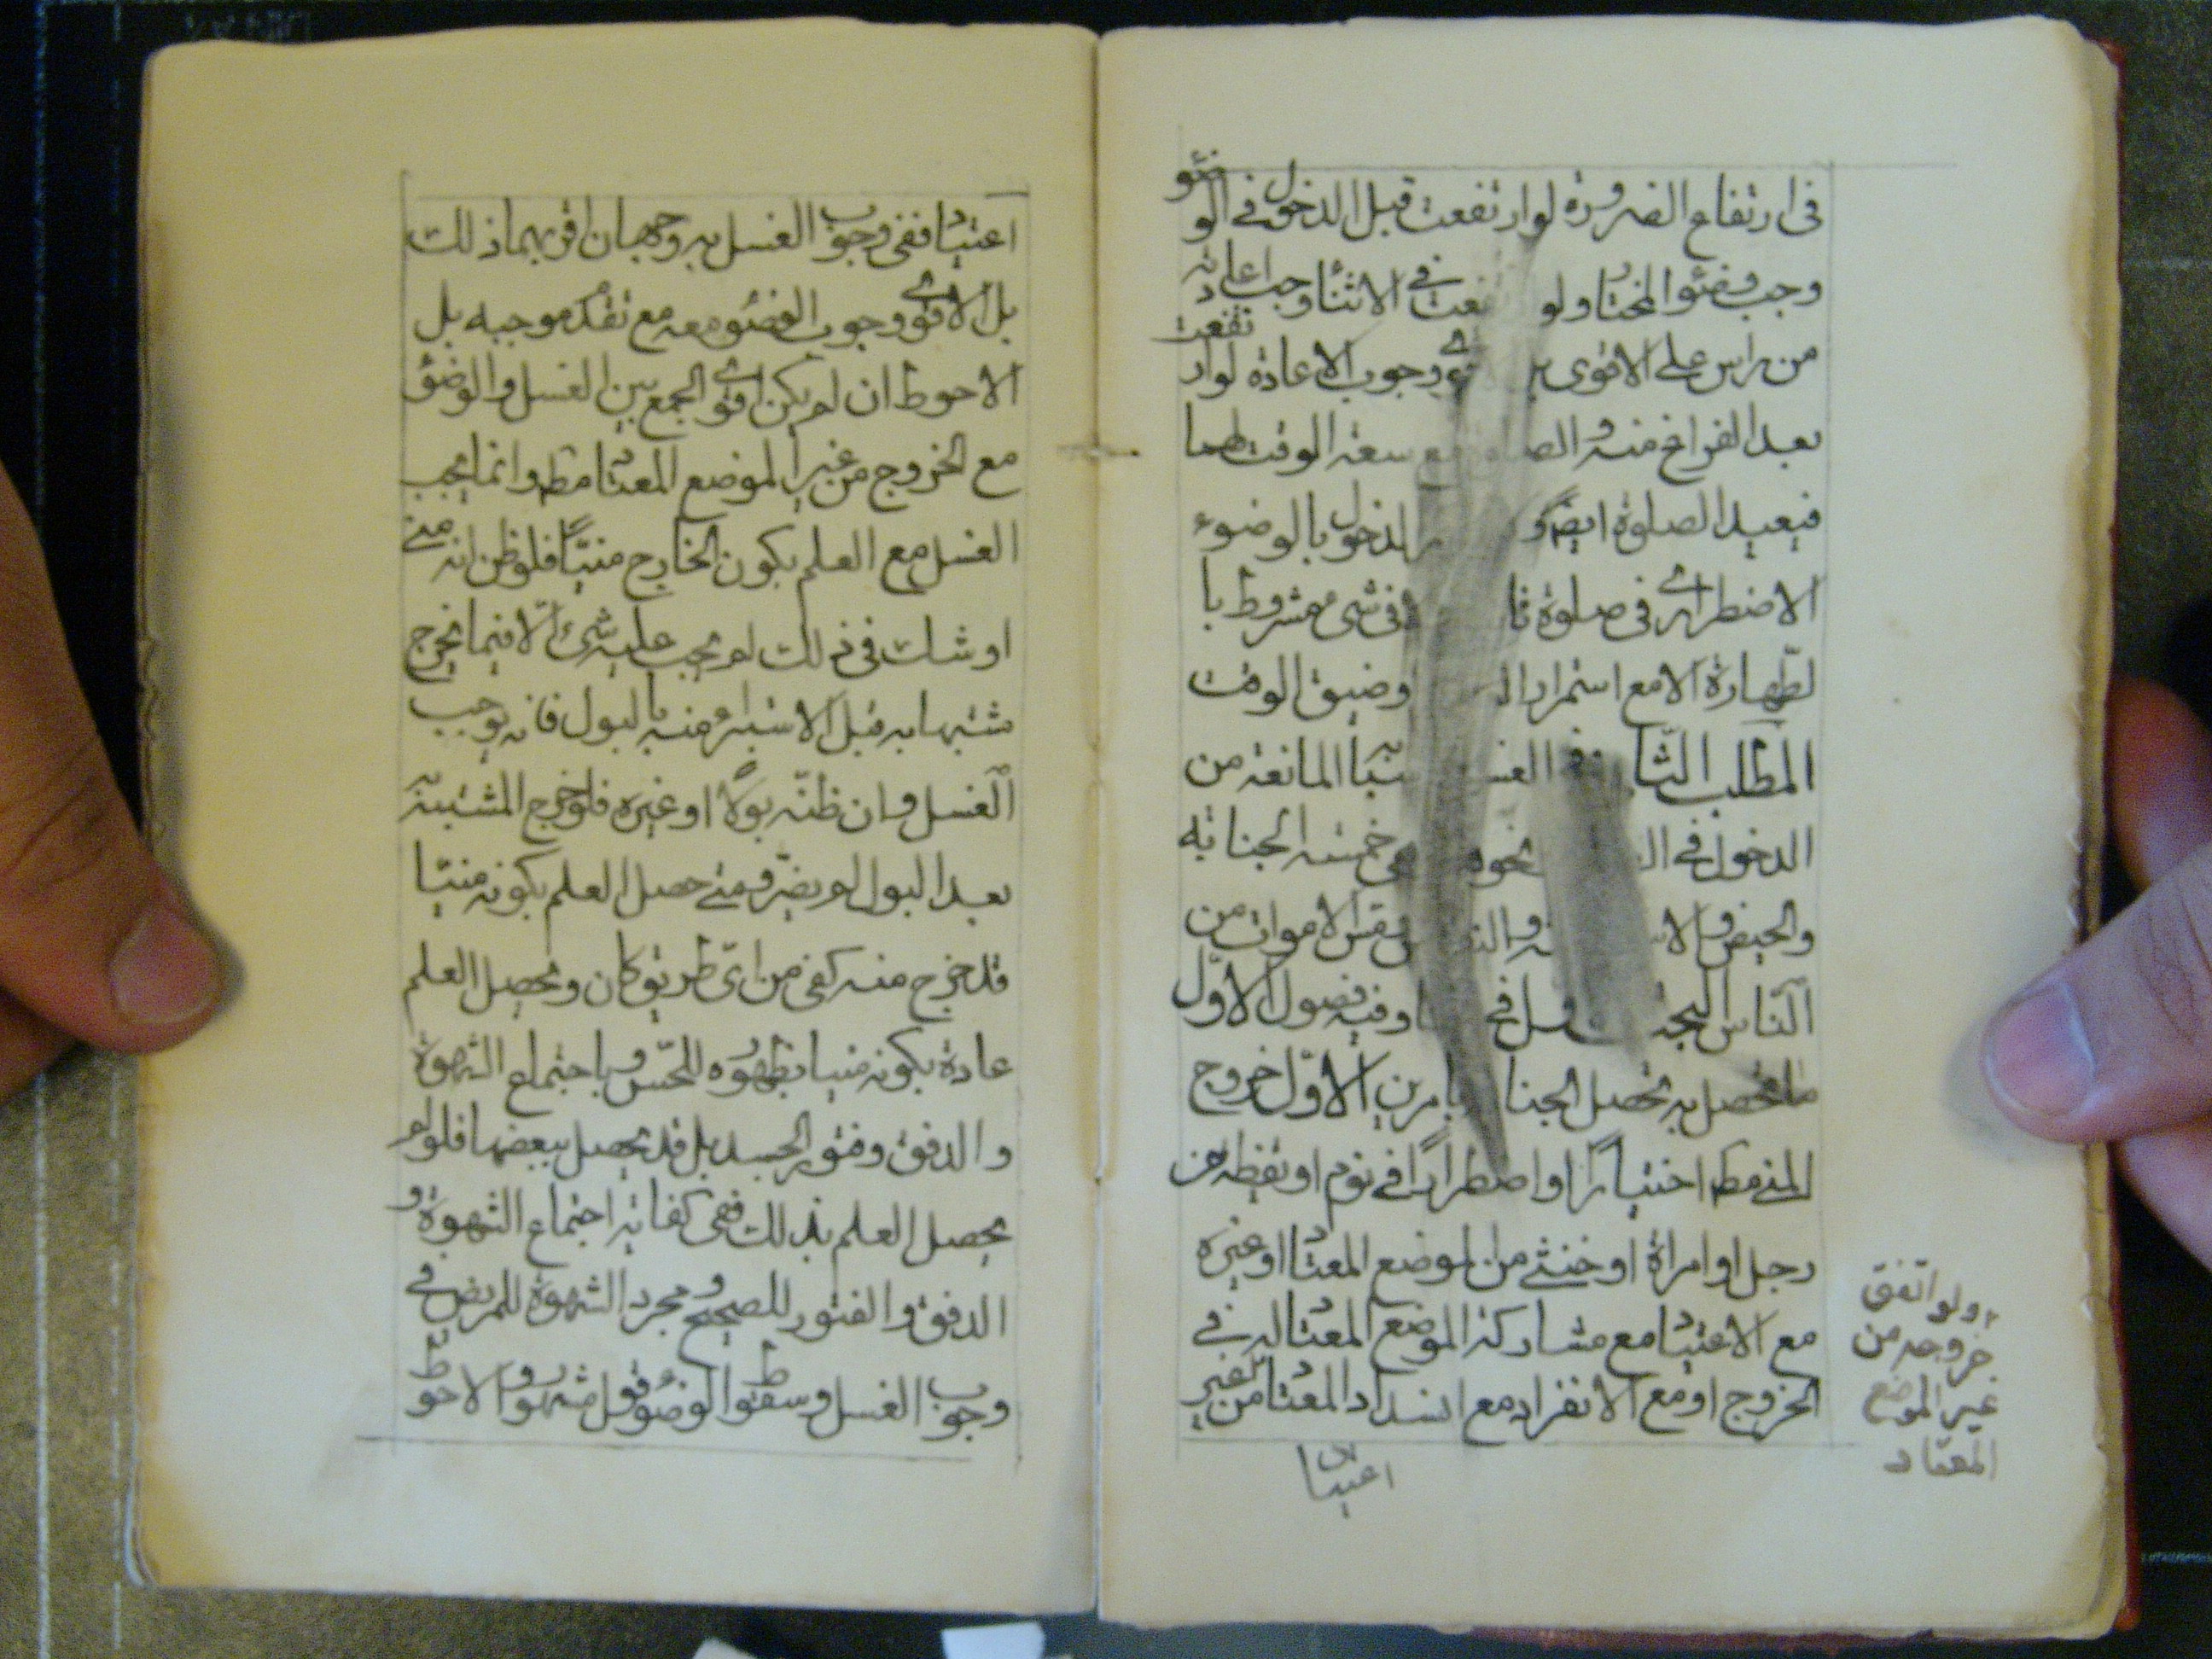 في ارتفاع الضرورة لو ارتفعت قبل الدخول في الوضوء
وجب وضوء المختار ولو نفعت في الاثناء وجب اعادته
من راس على الاقوى وجوب الاعادة لو ارتفعت
بعد الفراغ منه و مع سعة الوقت
فيعيد الصلوة ايضا الدخول بالوضوء
الاضطراري في صلوة في شيء مشروط با
لطهارة الا مع استمرار وضيق الوقت
المطلب الثا في الغسل المانعة من
الدخول في نحوه خمسة الجنابة
والحيض و الاموات من
الناس وفيه فصول الاول
ما تحصل به تحصل الجنا بامرين الاول خروج
المني مطه اختيارا او اضطرارا في نوم او يقظة من
رجل او امراة او خنثى من الموضع المعتاد او غيره
مع الاعتياد مع مشاركة الموضع المعتاد له في
الخروج او مع الانفراد مع انسداد المعتاد من غير
اعتياد
ولو اتفق
خروجه من
غير الموضع
المعتاد
اعتياد ففي وجوب الغسل به وجهان اقربهما ذلك
بل الاقوى وجوب الوضوء معه مع تقدم موجبه بل
الاحوط ان لم يكن اقوى الجمع بين الغسل والوضوء
مع الخروج من غير الموضع المعتاد مطه وانما يجب
الغسل مع العلم بكون الخارج منيا فلو ظن انه مني
او شك في ذلك لم يجب عليه شيء الا فيما يخرج
مشتبها به قبل الاستبراء منه بالبول فانه يوجب
الغسل وان ظنه بولا او غيره فلو خرج المشتبه
بعد البول لم يضر ومتى حصل العلم بكونه منيا
قد خرج منه كفى من اي طريق كان وتحصل العلم
عادة بكونه منيا بظهوره للحس وباجتماع الشهوة
والدفق وفتور الجسد بل قد يحصل ببعضها فلو لم
يحصل العلم بذلك ففي كفاية اجتماع الشهوة و
الدفق والفتور للصحيح ومجرد الشهوة للمريض في
وجوب الغسل وسقوط الوضوء قول مشهور والاحوط